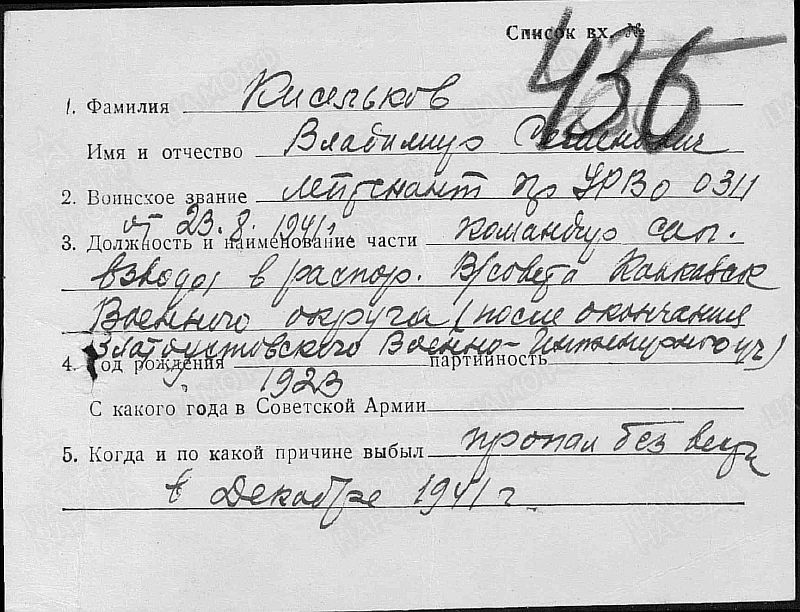 Список вх. № 436
1. Фамилия Кисельков
Имя и отчество Владимир Семенович
2. Воинское звание лейтенант пр УРВО 0311
от 23.8.1941г
3. Должность и наименование части командир сап.
взвода, в распор. В/совета Кавказск
Военного округа (после окончания
Златоустовского Военно-Инженерного уч)
4. Год рождения 1923 партийность
С какого года в Советской Армии
5. Когда и по какой причине выбыл пропал без вести
в декабре 1941 г.